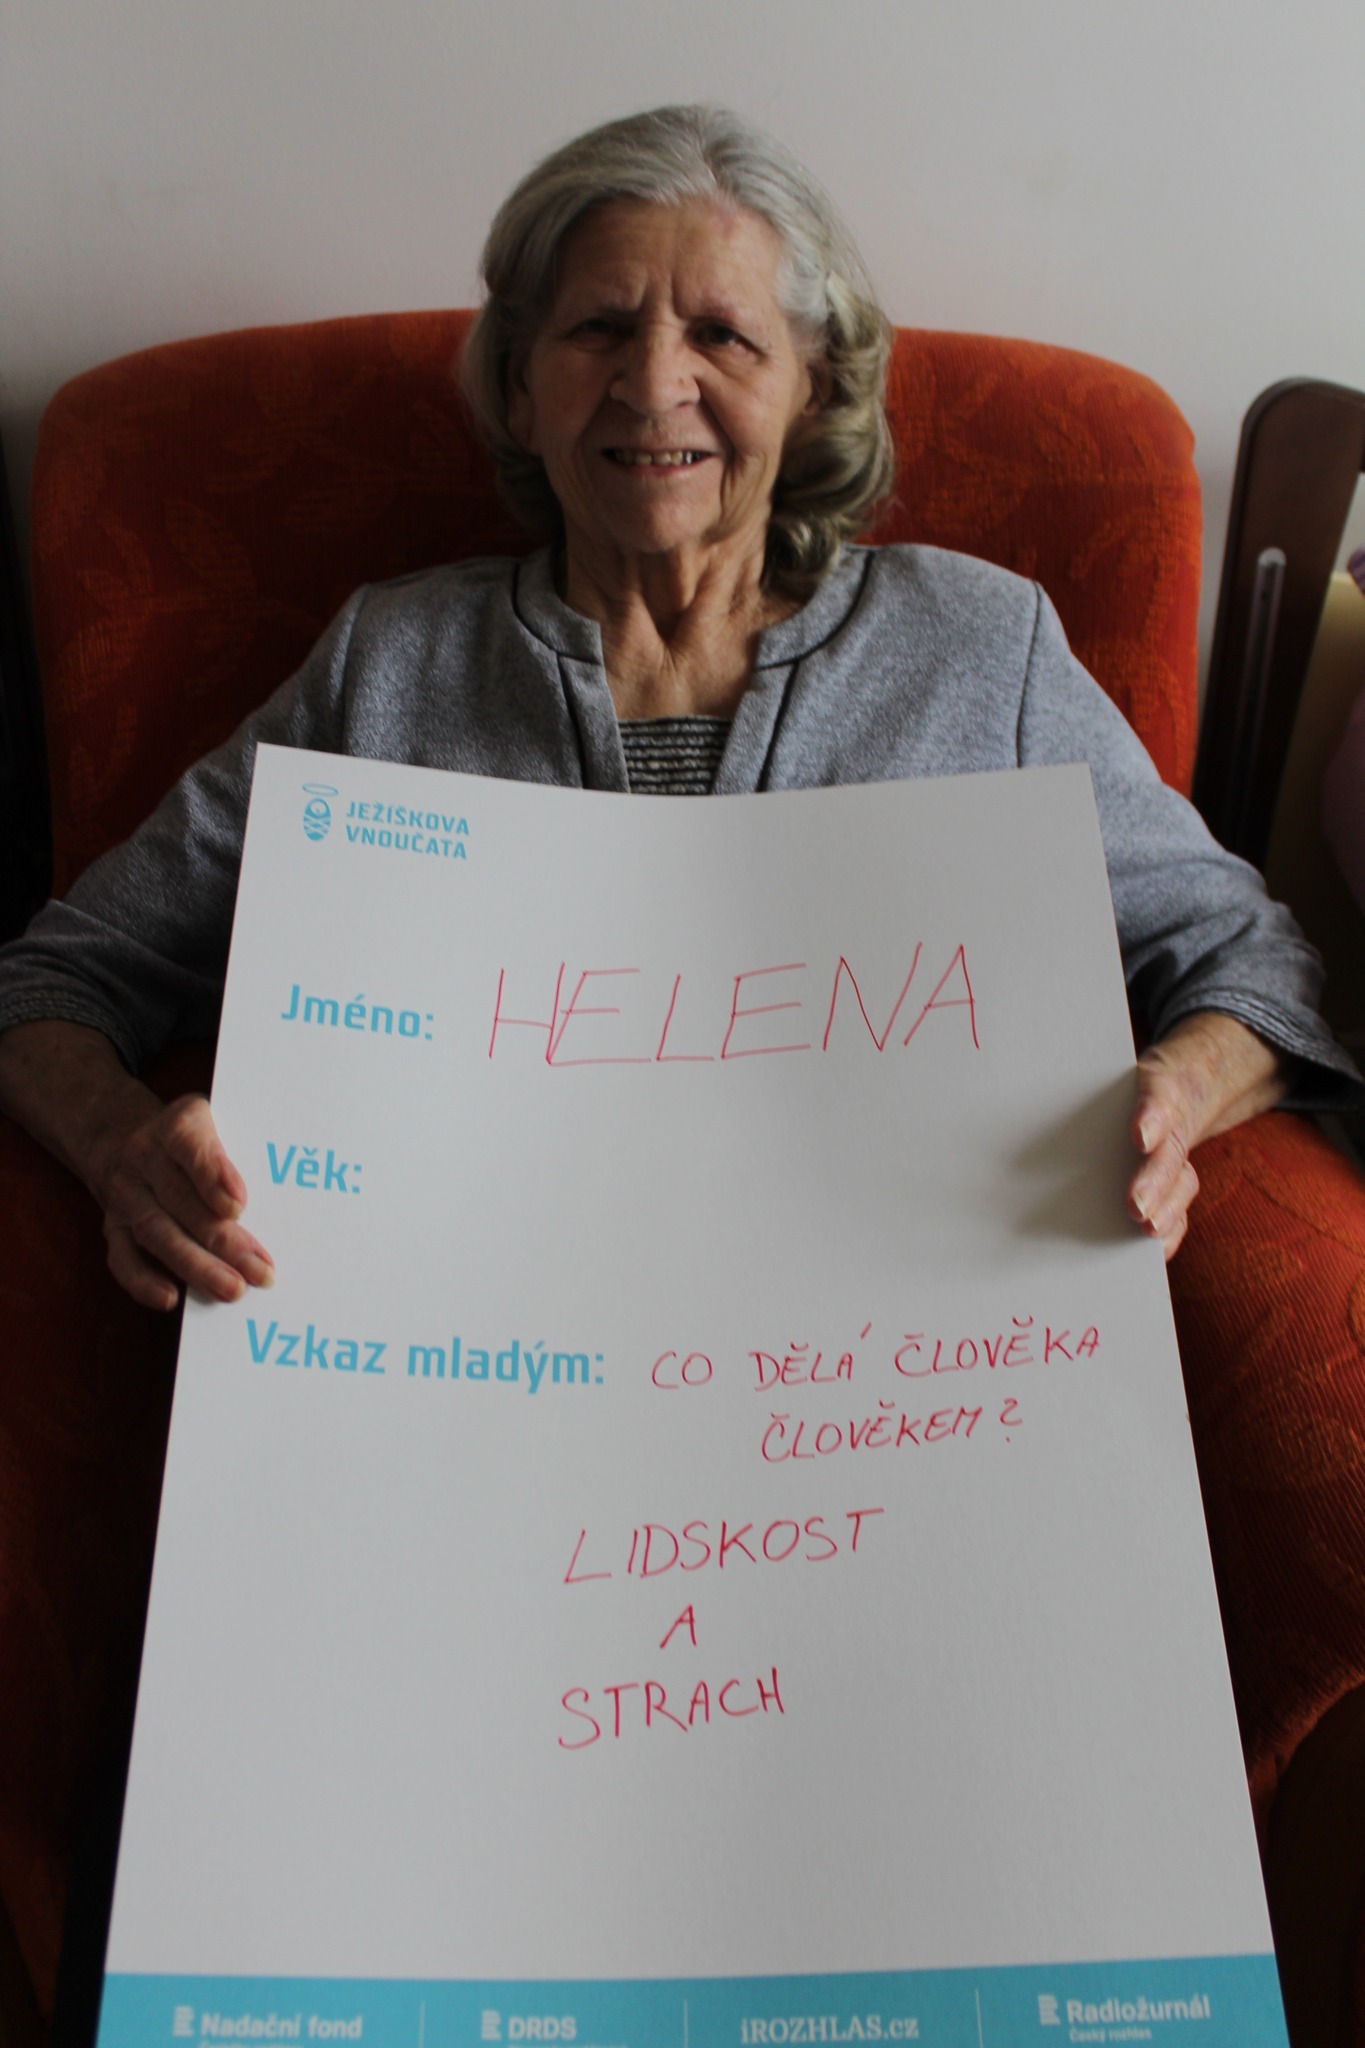 JEŽÍŠKOVA
VNOUČATA
Jméno: HELENA
Věk:
Vzkaz mladým: CO DĚLÁ ČLOVĚKA
ČLOVĚKEM?
LIDSKOST
A
STRACH
Nadační fond DRDS iROZHLAS.cz Radiožurnál
Český rozhlas